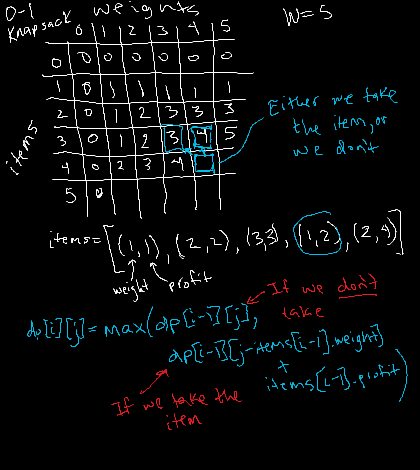 0-1 Knapsack weights W=5
0 1 2 3 4 5
0 0 0 0 0 0 0
1 0 1 1 1 1 1
2 0 1 2 3 3 3
3 0 1 2 3 4 5
4 0 2 3 4
5 0
items
Either we take
the item, or
we don't
items = [(1,1), (2,2), (3,3), (1,2), (2,4)]
weight profit
If we don't
take
dp[i][j] = max(dp[i-1][j],
dp[i-1][j-items[i-1].weight]
+
items[i-1].profit)
If we take the
item